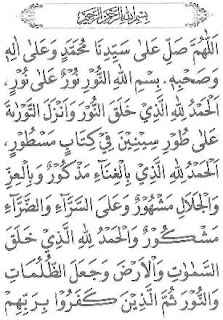 بِسْمِ اللهِ الرَّحْمٰنِ الرَّحِيْمِ
اَللّٰهُمَّ صَلِّ عَلٰى سَيِّدِنَا مُحَمَّدٍ وَعَلٰى اٰلِهِ
وَصَحْبِهِ. بِسْمِ اللهِ النُّوْرِ نُوْرٌ عَلٰى نُوْرٍ،
اَلْحَمْدُ لِلّٰهِ الَّذِيْ خَلَقَ النُّوْرَ وَاَنْزَلَ التَّوْرٰىةَ
عَلٰى طُوْرِ سِيْنِيْنَ فِيْ كِتَابٍ مَسْطُوْرٍ،
اَلْحَمْدُ لِلّٰهِ الَّذِيْ بِالْغِنَاءِ مَذْكُوْرٌ وَبِالْعِزِّ
وَالْجَلَالِ مَشْهُوْرٌ وَعَلَى السَّرَّآءِ وَالضَّرَّآءِ
مَشْكُوْرٌ وَالْحَمْدُ لِلّٰهِ الَّذِيْ خَلَقَ
السَّمٰوٰتِ وَالْاَرْضَ وَجَعَلَ الظُّلُمَاتِ
وَالنُّوْرَ ثُمَّ الَّذِيْنَ كَفَرُوْا بِرَبِّهِمْ